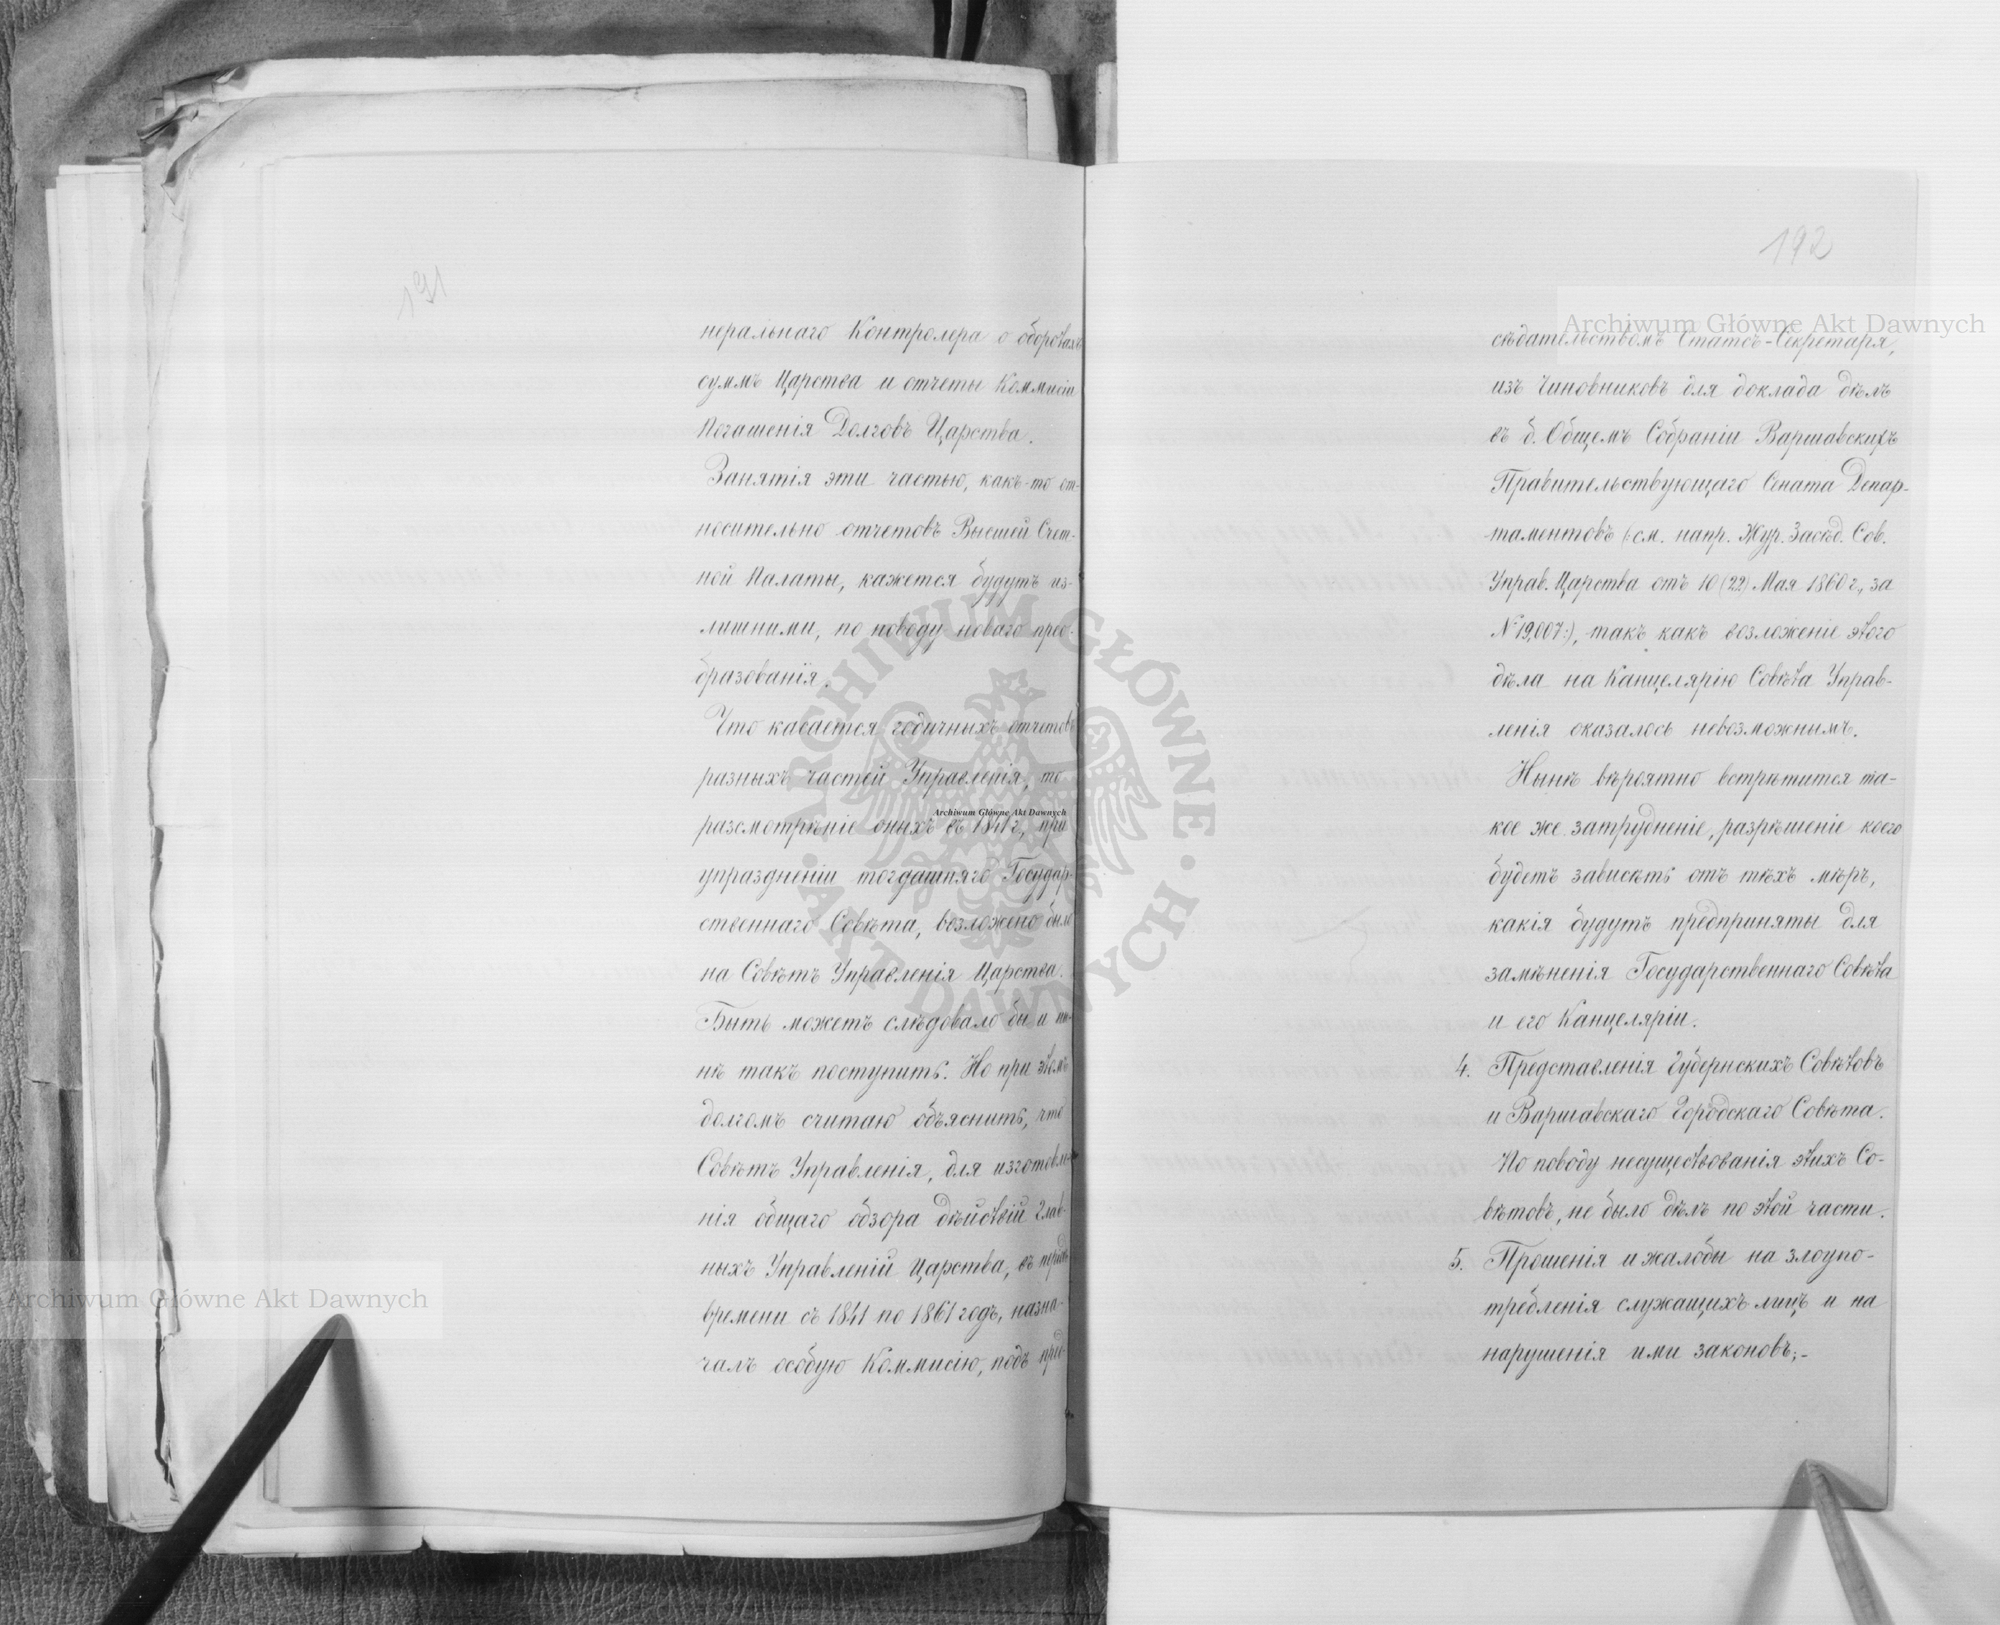 191
неральнаго Контролера о оборотахъ
суммъ Царства и отчеты Коммисіи
Погашенія Долговъ Царства.
Занятія эти частью, какъ-то от-
носительно отчетовъ Высшей Счет-
ной Палаты, кажется будутъ из-
лишними, по поводу новаго прео-
бразованія.
Что касается годичныхъ отчетовъ
разныхъ частей Управленія, то
разсмотрѣніе оныхъ въ 1841 г., при
упраздненіи тогдашняго Государ-
ственнаго Совѣта, возложено было
на Совѣтъ Управленія Царства.
Быть можетъ слѣдовало бы и ны-
нѣ такъ поступить. Но при этомъ
долгомъ считаю объяснить, что
Совѣтъ Управленія, для изготовле-
нія общаго обзора дѣйствій Глав-
ныхъ Управленій Царства, въ періодъ
времени съ 1841 по 1861 годъ, назна-
чалъ особую Коммисію, подъ пред-
192
сѣдательствомъ Статсъ-Секретаря,
изъ Чиновниковъ для доклада дѣлъ
въ б. Общемъ Собраніи Варшавскихъ
Правительствующаго Сената Депар-
таментовъ (:см. напр. Жур. Засѣд. Сов.
Управ. Царства отъ 10 (22) Мая 1860 г., за
№ 19,007:), такъ какъ возложеніе этого
дѣла на Канцелярію Совѣта Управ-
ленія оказалось невозможнымъ.
Нынѣ вѣроятно встрѣтится та-
кое же затрудненіе, разрѣшеніе коего
будетъ зависѣть отъ тѣхъ мѣръ,
какія будутъ предприняты для
замѣненія Государственнаго Совѣта
и его Канцеляріи.
4. Представленія Губернскихъ Совѣтовъ
и Варшавскаго Городскаго Совѣта.
По поводу несуществованія этихъ Со-
вѣтовъ, не было дѣлъ по этой части.
5. Прошенія и жалобы на злоупо-
требленія служащихъ лицъ и на
нарушенія ими законовъ;-
Archiwum Główne Akt Dawnych
Archiwum Główne Akt Dawnych
Archiwum Główne Akt Dawnych
ARCHIWUM GŁÓWNE · AKT DAWNYCH ·